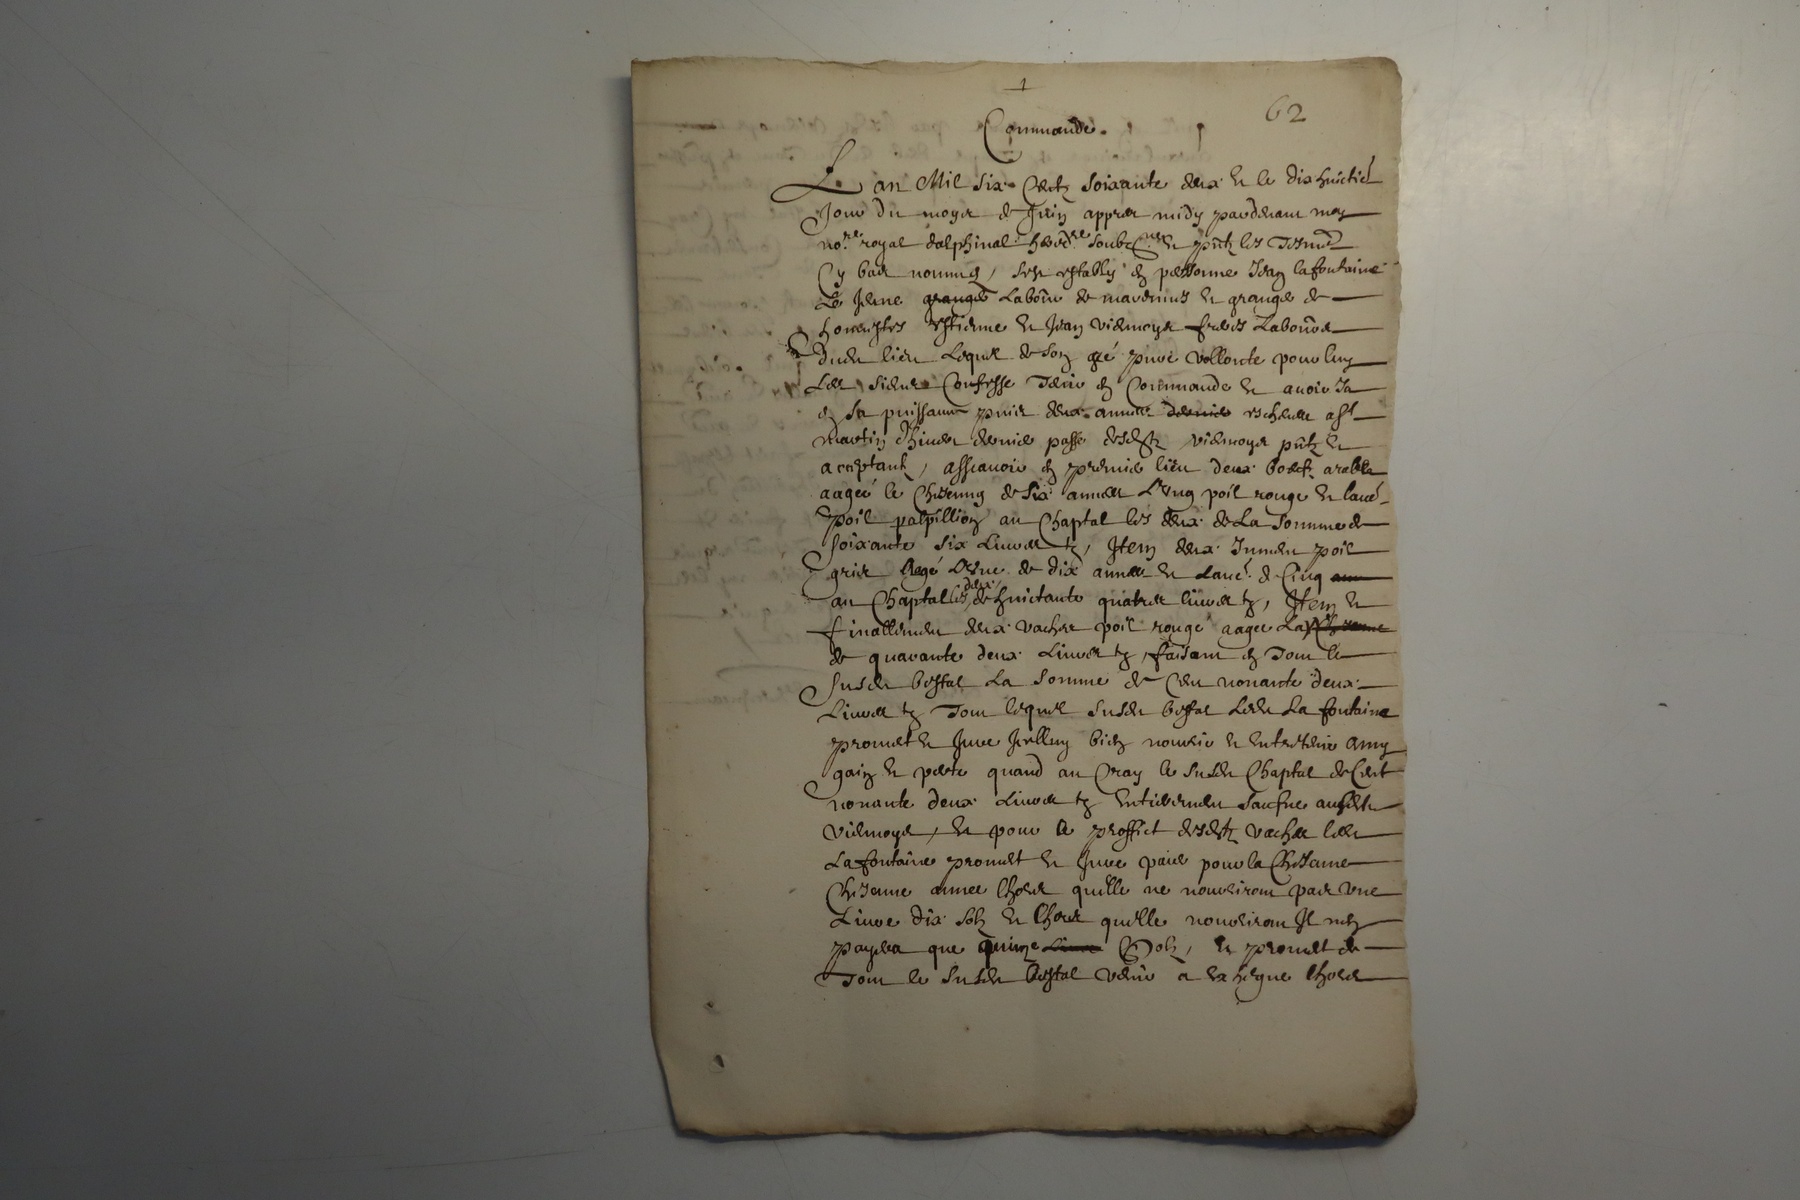 1
62
Commande.
L'an Mil six Centz soixante deux et le dix huictie
Jour du moys de Juin appres midy pardevant moy
no.re royal dalphinal hered.re soubz.ne et pntz les Tesm
Cy bas nommes, sest estably en personne Jean lafontaine
Le Jeune grange Labour de et granger de
honestes Estienne et Jean Vilmoys freres Laboure
Dudit lieu Lequel de son gré pure vollonte pour luy
Les siens Confesse Tenir en Commande et avoir Ja
en sa puissance puis deux annees dernie escheue a feste
martin Dhiver dernie passe desditz Vilmoys pntz et
acceptantz, assavoir en premie lieu deux boeufz arables
aagee le Chescung de six annees L'ung poil rouge et laue
poil palpillion au Chaptal les deux de La somme de
soixante six Livres tz, Item deux Jumen poil
gris aagé L'une de dix annees et Laue de Cinq ann
au Chaptal les deux de huictante quatre livres tz, Item et
finallement deux vaches poil rouge aagee La
de quarante deux Livres tz, faisant en Tout le
susdit bestal La somme de Cent nonante deux
Livres tz Tout lequel susdit bestal Ledit La fontaine
promet et Jure Jcelluy bien nourrir et Entretenir a my
gain et perte quand au Cray le susdit Chaptal de Cent
nonante deux Livres tz Entierement saufve ausditz
Vilmoys, et pour le proffict desditz vaches ledit
Lafontaine promet et Jure paie pour la Chescune
Chescune annee Lhors quelle ne nourriront pas une
Livre dix solz et Lhors quelle nourriront Il nen
payera que quinze Livre Solz, et promet de
Tout le susdit bestal venir a lhors